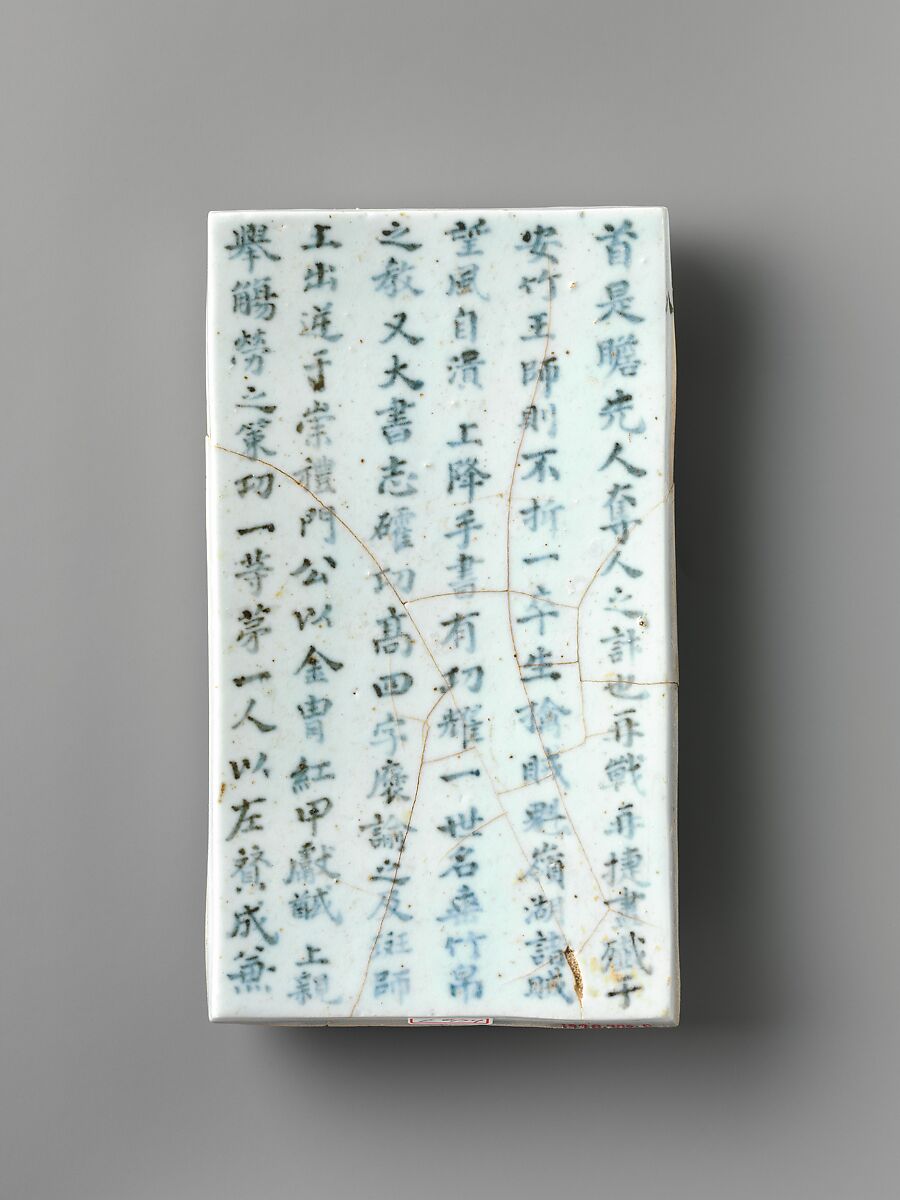 首是瞻先人奪人之計也再戰再捷殲于
安竹王師則不折一卒生擒賊魁嶺湖諸賊
望風自潰 上降手書有功耀一世名垂竹帛
之教又大書志確功高四字褒諭之及班師
上出迎于崇禮門公以金冑紅甲獻馘 上親
擧觴勞之策功一等第一人以左贊成兼